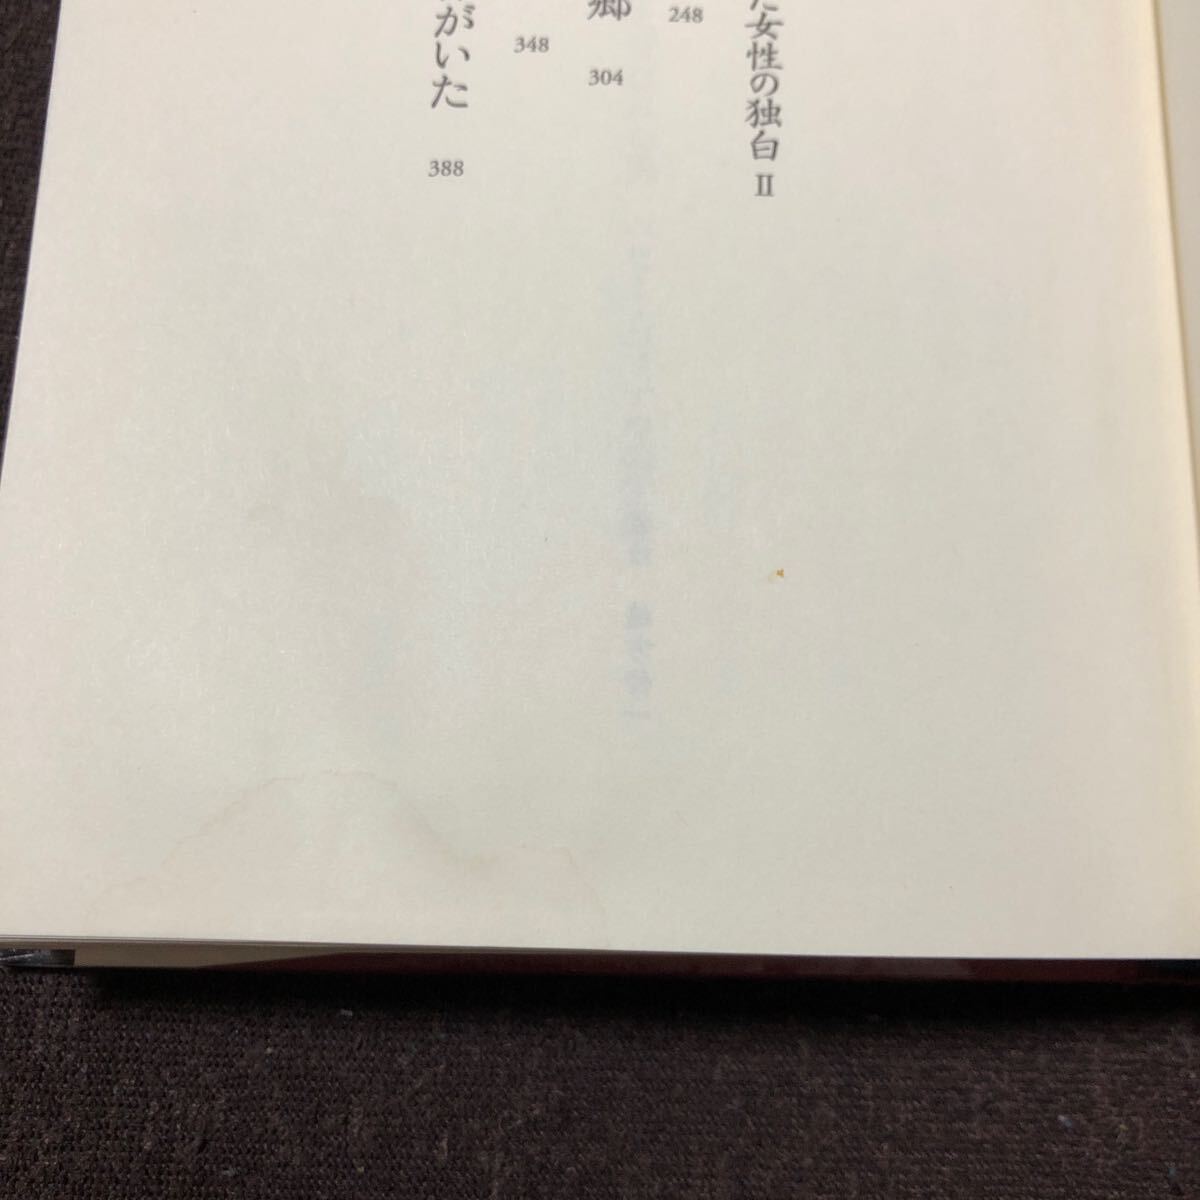 た女性の独白 II
248
郷
304
348
がいた
388